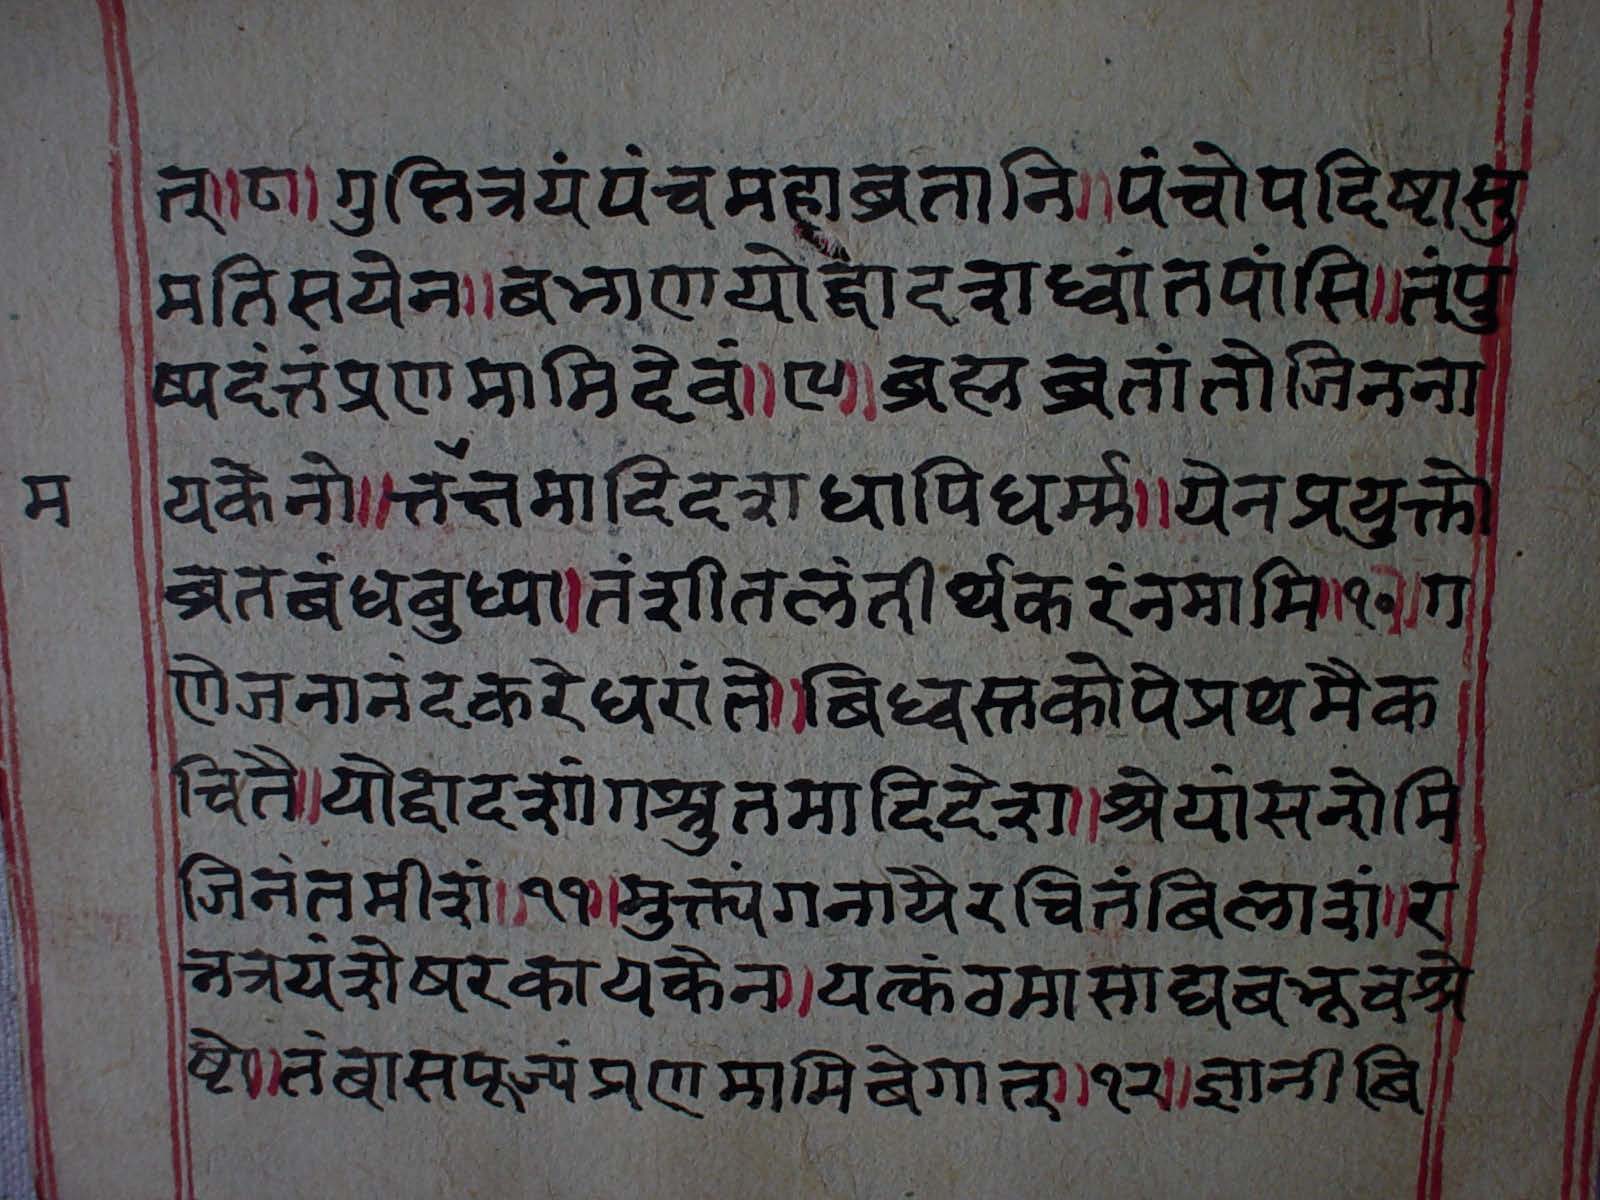 त्॥८॥गुप्तित्रयंपंचमहाब्रतानि॥पंचोपदिष्टासु
मतिसयेन॥बभाणयोद्वादशाध्वांतपांसि॥तंपु
ष्पदंत्तंप्रणमामिदेवं॥९॥ब्रह्मब्रतांतौजिनना
यकेनो॥त्तँत्तमादिदशधापिधर्म्म॥येनप्रयुक्तो
म
ब्रतबंधबुध्या॥तंशीतलंतीर्थकरंनमामि॥१०॥ग
णेजनानंदकरेधरांते॥बिध्वस्तकोपेप्रथमैक
चितै॥योद्वादशांगश्रुतमादिदेश॥श्रेयांसनोमि
जिनंतमीशं॥११॥मुक्त्यंगनायैरचितंबिलाशं॥र
त्नत्रयंशेषरकायकेन॥यत्कंठमासाद्यबभूवश्रे
ष्टो॥तंबासपूज्यंप्रणमामिबेगात्॥१२॥ज्ञानीबि